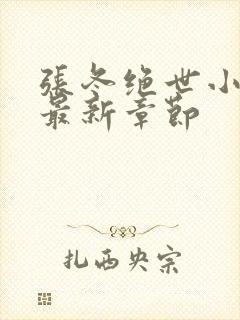 張冬绝世小
最新章節
扎西央宗